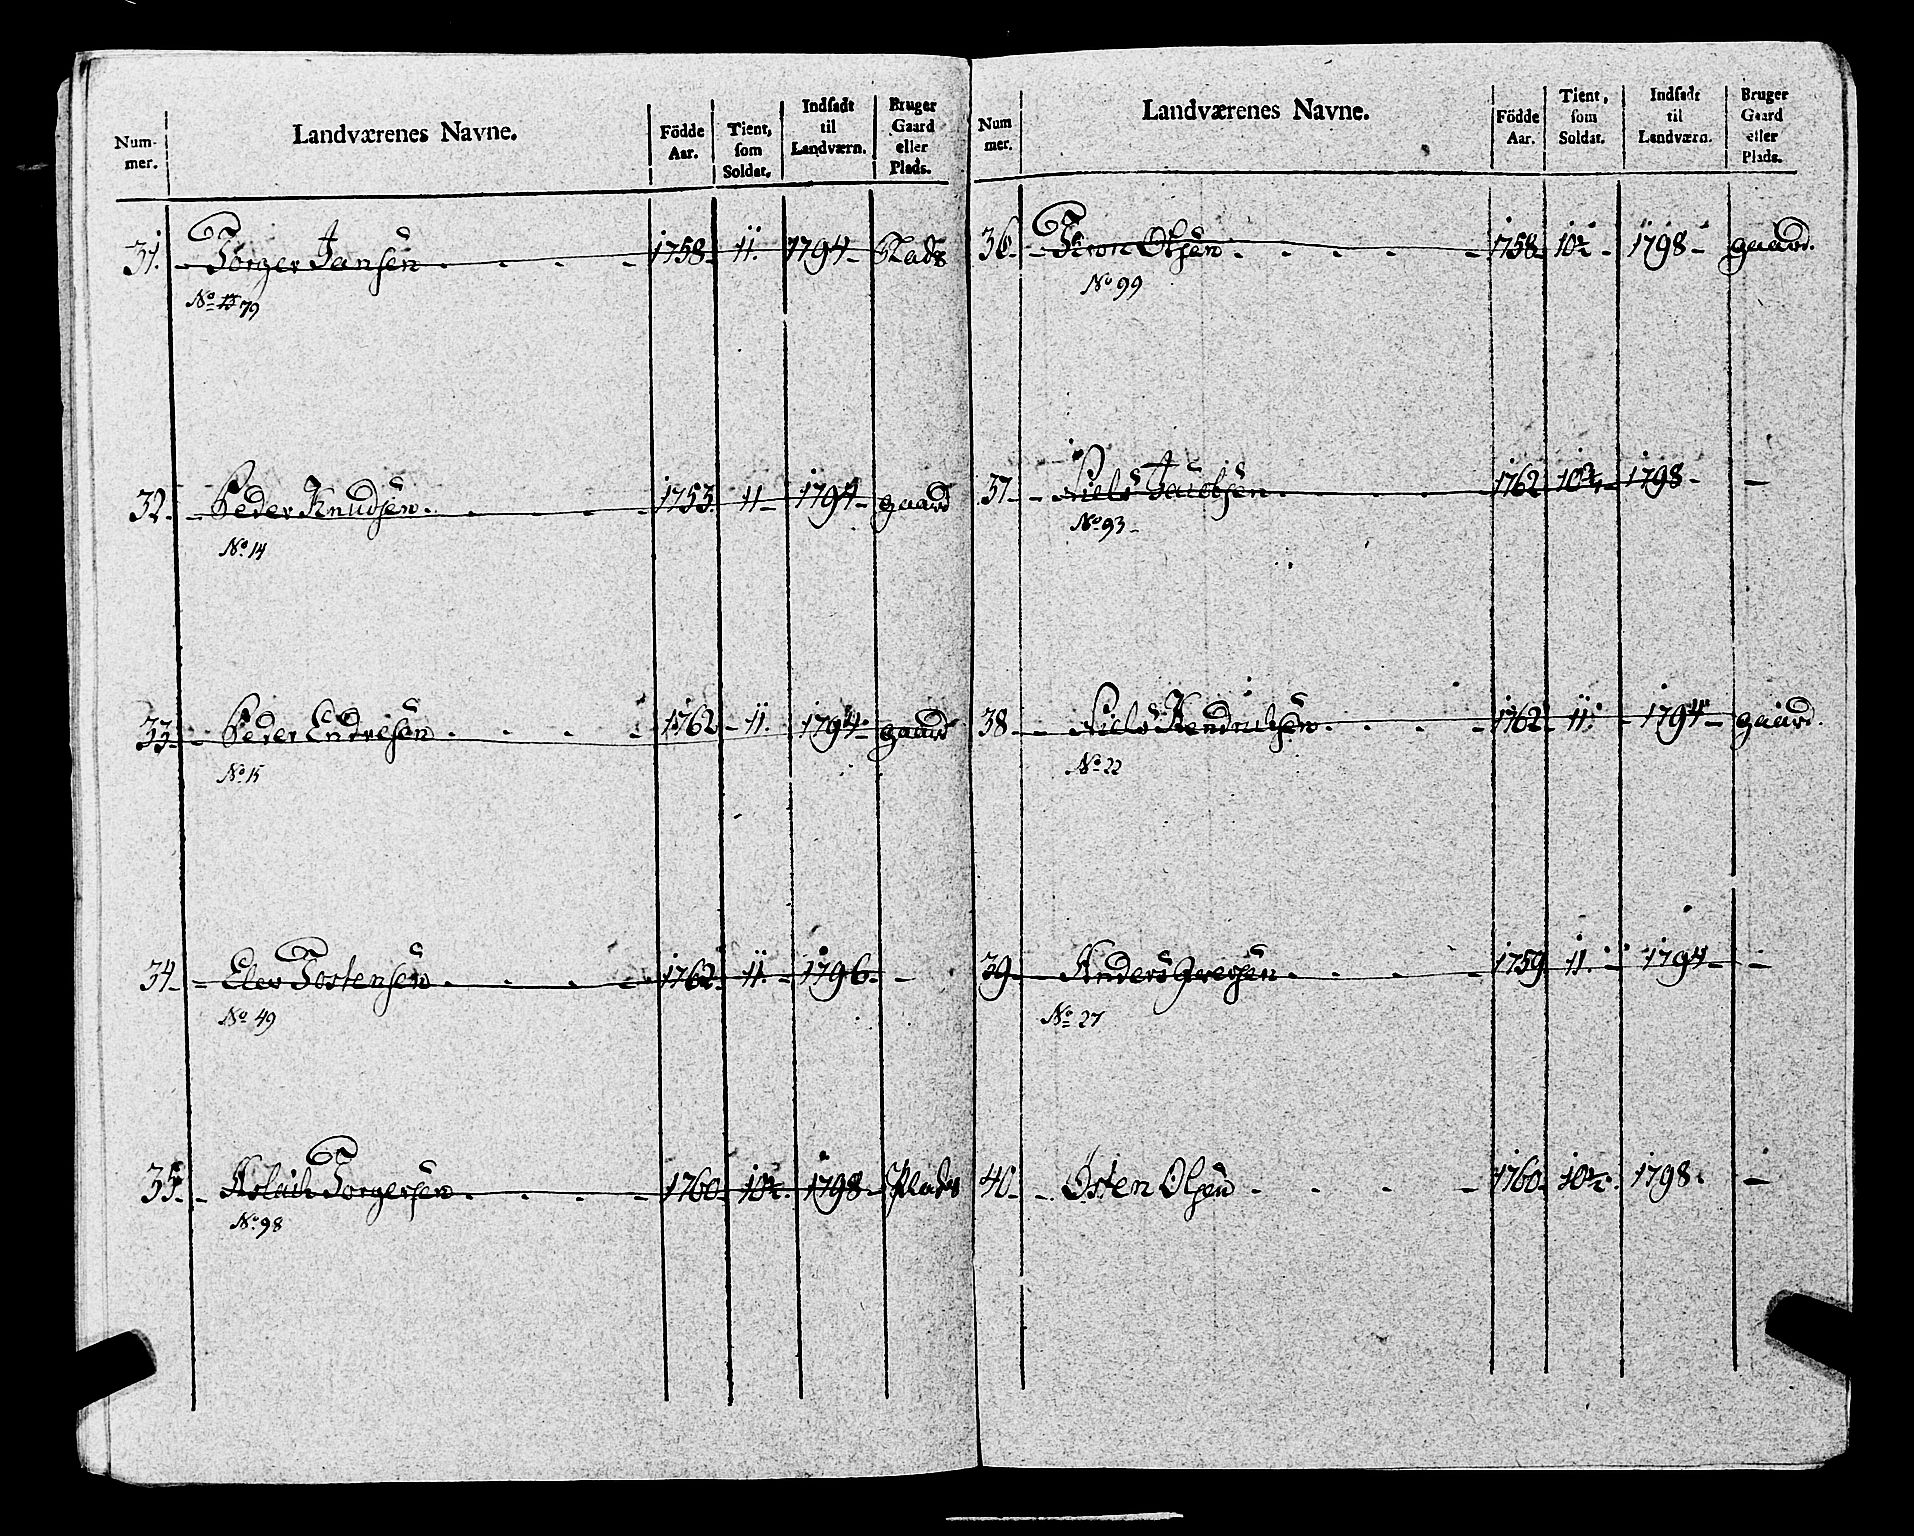 Num-
mer.
Landværenes Navne.
Födde
Aar.
Tient,
som
Soldat.
Indsadt
til
Landværn.
Bruger
Gaard
eller
Plads.
31. Torger Jansen 1758 11. 1794 Plads
No 79
32. Peder Knudsen 1753 11 1794 gaard
No 14
33. Peder Endresen 1762 11. 1794 gaard
No 15
34. Elev Tostensen 1762 11. 1796. -
No 49
35. Aslach Torgersen 1760 10½. 1798 Plads
No 98
Num
mer.
Landværenes Navne.
Födde
Aar.
Tient,
som
Soldat.
Indsadt
til
Landværn.
Bruger
Gaard
eller
Plads.
36. Olsen 1758 10½ 1798 gaard.
No 99
37. Niels Jacobsen 1762 1798 -
No 93
38. Niels Hendrichsen 1762 11. 1794 gaard.
No 22
39. Anders Iversen 1759 11. 1794 -
No 27
40. Østen Olsen 1760 10½. 1798. -